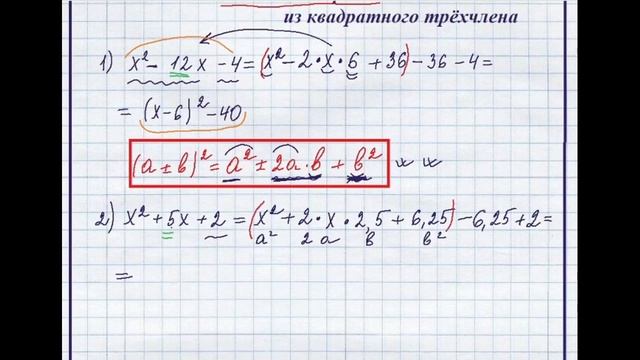 из квадратного трёхчлена
1) x² − 12x − 4 = (x² − 2·x·6 + 36) − 36 − 4 =
= (x−6)² − 40
(a ± b)² = a² ± 2a·b + b²
2) x² + 5x + 2 = (x² + 2·x·2,5 + 6,25) − 6,25 + 2 =
a² 2 a b b²
=